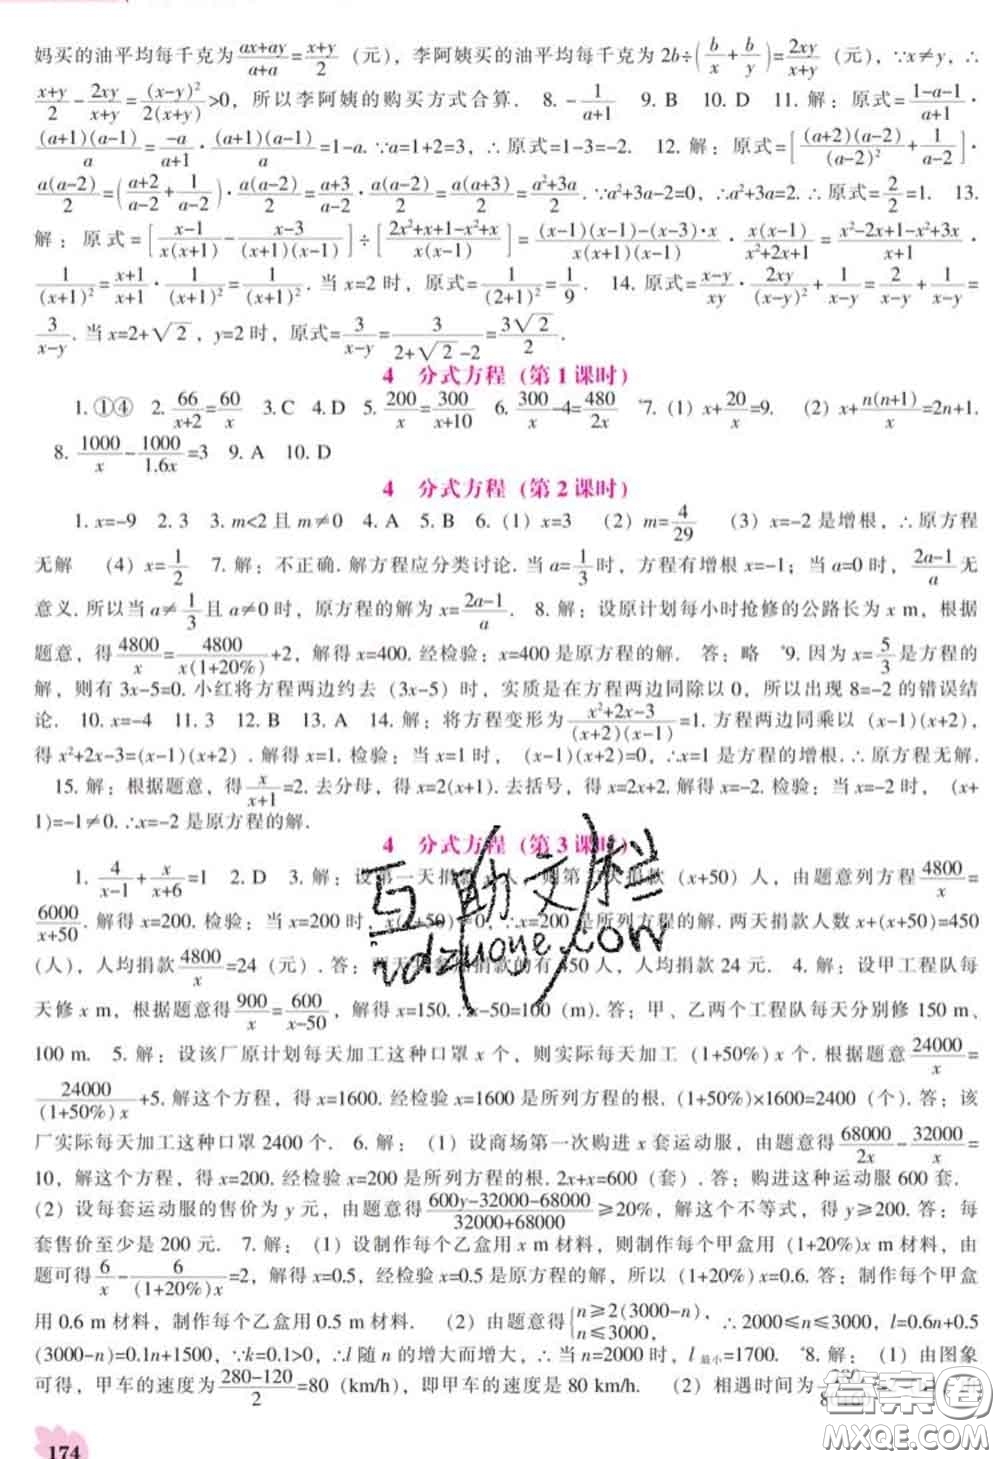 妈买的油平均每千克为(ax+ay)/(a+a)=(x+y)/2（元），李阿姨买的油平均每千克为2b÷(b/x+b/y)=2xy/(x+y)（元），∵x≠y，∴
(x+y)/2-2xy/(x+y)=(x-y)²/2(x+y)>0，所以李阿姨的购买方式合算. 8. -1/(a+1) 9. B 10. D 11. 解：原式=(1-a-1)/(a+1)·
(a+1)(a-1)/a=-a/(a+1)·(a+1)(a-1)/a=1-a. ∵a=1+2=3，∴原式=1-3=-2. 12. 解：原式=[(a+2)(a-2)/(a-2)²+1/(a-2)]·
a(a-2)/2=((a+2)/(a-2)+1/(a-2))·a(a-2)/2=(a+3)/(a-2)·a(a-2)/2=a(a+3)/2=(a²+3a)/2. ∵a²+3a-2=0，∴a²+3a=2. ∴原式=2/2=1. 13.
解：原式=[(x-1)/x(x+1)-(x-3)/(x+1)(x-1)]÷[(2x²+x+1-x²+x)/x(x-1)]=((x-1)(x-1)-(x-3)·x)/x(x+1)(x-1)·x(x-1)/(x²+2x+1)=(x²-2x+1-x²+3x)/(x+1)·
1/(x+1)²=(x+1)/(x+1)·1/(x+1)²=1/(x+1)². 当x=2时，原式=1/(2+1)²=1/9. 14. 原式=(x-y)/xy·2xy/(x-y)²+1/(x-y)=2/(x-y)+1/(x-y)=
3/(x-y). 当x=2+√2，y=2时，原式=3/(x-y)=3/(2+√2-2)=3√2/2.
4 分式方程（第1课时）
1. ①④ 2. 66/(x+2)=60/x 3. C 4. D 5. 200/x=300/(x+10) 6. 300/x-4=480/2x *7. (1) x+20/x=9. (2) x+n(n+1)/x=2n+1.
8. 1000/x-1000/1.6x=3 9. A 10. D
4 分式方程（第2课时）
1. x=-9 2. 3 3. m<2且m≠0 4. A 5. B 6. (1) x=3 (2) m=4/29 (3) x=-2是增根，∴原方程
无解 (4) x=1/2 7. 解：不正确. 解方程应分类讨论. 当a=1/3时，方程有增根x=-1；当a=0时，(2a-1)/a无
意义. 所以当a≠1/3且a≠0时，原方程的解为x=(2a-1)/a. 8. 解：设原计划每小时抢修的公路长为x m，根据
题意，得4800/x=4800/x(1+20%)+2，解得x=400. 经检验：x=400是原方程的解. 答：略 *9. 因为x=5/3是方程的
解，则有3x-5=0. 小红将方程两边约去（3x-5）时，实质是在方程两边同除以0，所以出现8=-2的错误结
论. 10. x=-4 11. 3 12. B 13. A 14. 解：将方程变形为(x²+2x-3)/(x+2)(x-1)=1. 方程两边同乘以 (x-1)(x+2)，
得x²+2x-3=(x-1)(x+2). 解得x=1. 检验：当x=1时，(x-1)(x+2)=0，∴x=1是方程的增根. ∴原方程无解.
15. 解：根据题意，得x/(x+1)=2. 去分母，得x=2(x+1). 去括号，得x=2x+2. 解得x=-2. 检验：当x=-2时，(x+
1)=-1≠0. ∴x=-2是原方程的解.
4 分式方程（第3课时）
1. 4/(x-1)+x/(x+6)=1 2. D 3. 解：设第一天捐款x人，则第二天捐款（x+50）人，由题意列方程4800/x=
6000/(x+50). 解得x=200. 检验：当x=200时，x(x+50)≠0，∴x=200是所列方程的解. 两天捐款人数x+(x+50)=450
(人)，人均捐款4800/x=24（元）. 答：两天 捐款的有450人，人均捐款24元. 4. 解：设甲工程队每
天修x m，根据题意得900/x=600/(x-50)，解得x=150. ∴x-50=100 (m). 答：甲、乙两个工程队每天分别修150 m、
100 m. 5. 解：设该厂原计划每天加工这种口罩x个，则实际每天加工（1+50%）x个. 根据题意24000/x=
24000/(1+50%)x+5. 解这个方程，得x=1600. 经检验x=1600是所列方程的根. (1+50%)×1600=2400（个）. 答：该
厂实际每天加工这种口罩2400个. 6. 解：（1）设商场第一次购进x套运动服，由题意得68000/2x-32000/x=
10，解这个方程，得x=200. 经检验x=200是所列方程的根. 2x+x=600（套）. 答：购进这种运动服600套.
（2）设每套运动服的售价为y元，由题意得(600y-32000-68000)/(32000+68000)≥20%，解这个不等式，得y≥200. 答：每
套售价至少是200元. 7. 解：（1）设制作每个乙盒用x m材料，则制作每个甲盒用（1+20%)x m材料，由
题可得6/x-6/(1+20%)x=2，解得x=0.5，经检验x=0.5是原方程的解，所以（1+20%)x=0.6. 答：制作每个甲盒
用0.6 m材料，制作每个乙盒用0.5 m材料. （2）由题意得{n≥2(3000-n)，n≤3000， ∴2000≤n≤3000，l=0.6n+0.5
(3000-n)=0.1n+1500，∵k=0.1>0，∴l随n的增大而增大，∴当n=2000时，l最小=1700. *8. 解：（1）由图象
可得，甲车的速度为(280-120)/2=80 (km/h)，即甲车的速度是80 km/h. （2）相遇时间为
174
互助文栏
hdzuoye.com
答案圈
MXQE.COM